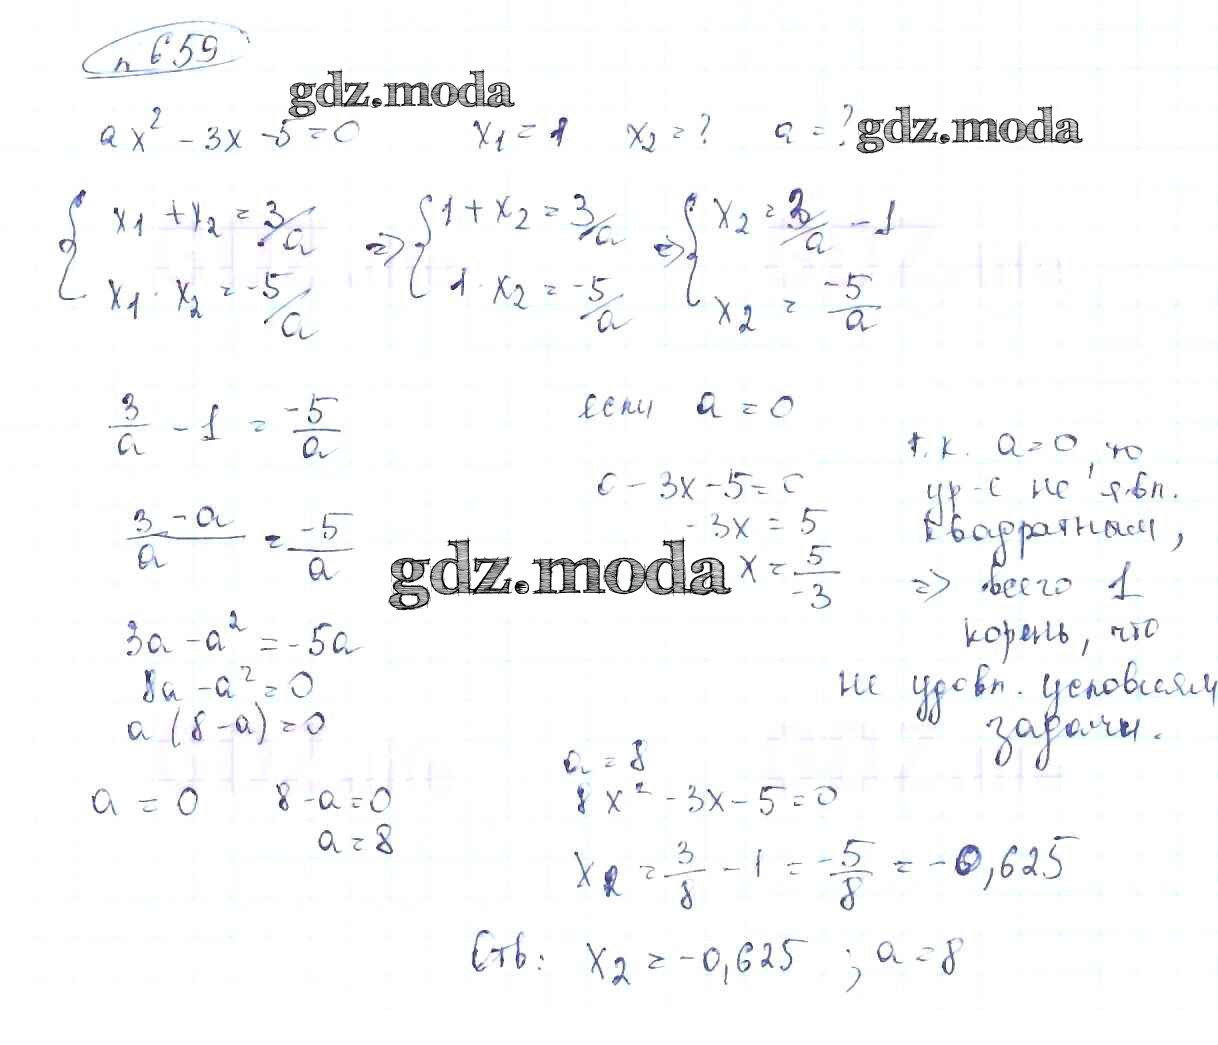 n 659
gdz.moda
ax² - 3x - 5 = 0   x₁ = 1   x₂ = ?   a = ?
gdz.moda
{ x₁ + x₂ = 3/a  => { 1 + x₂ = 3/a  => { x₂ = 3/a - 1
x₁ · x₂ = -5/a   1 · x₂ = -5/a   x₂ = -5/a
3/a - 1 = -5/a
(3 - a)/a = -5/a
3a - a² = -5a
8a - a² = 0
a (8 - a) = 0
a = 0   8 - a = 0
a = 8
если a = 0
0 - 3x - 5 = 0
- 3x = 5
x = 5/-3
gdz.moda
т.к. a = 0, то
ур-е не явл.
квадратным,
=> всего 1
корень, что
не удовл. условиям
задачи.
a = 8
8x² - 3x - 5 = 0
x₂ = 3/8 - 1 = -5/8 = -0,625
Отв: x₂ = -0,625 ; a = 8